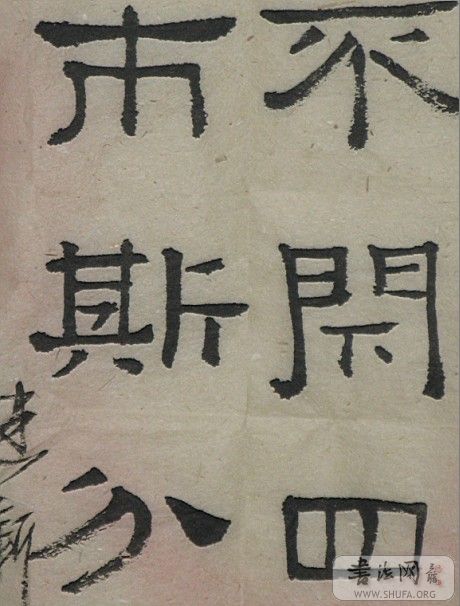 不閇四
市斯分
書法网
WWW.SHUFA.ORG